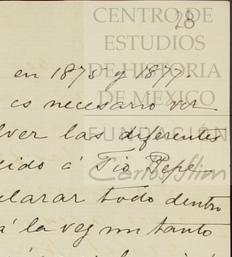 28
CENTRO DE
ESTUDIOS
DE HISTORIA
DE MEXICO
FUNDACIÓN
Carlos Slim
en 1875 y 1877.
es necesario ver
lver las diferentes
ido á Tio Pepe
clarar todo dentro
á la vez un tanto